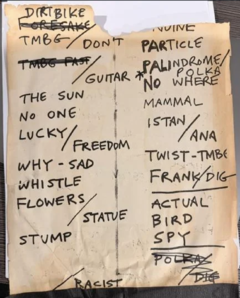 DIRTBIKE
FORESAKE
TMBG / DON'T
TMBG PAST
GUITAR
THE SUN
NO ONE
LUCKY / FREEDOM
WHY - SAD
WHISTLE
FLOWERS / STATUE
STUMP
/ RACIST
PARTICLE
PALINDROME / POLKA
* NO WHERE
MAMMAL
ISTAN / ANA
TWIST-TMBG
FRANK / DIG
ACTUAL
BIRD
SPY
POLKA / DIG